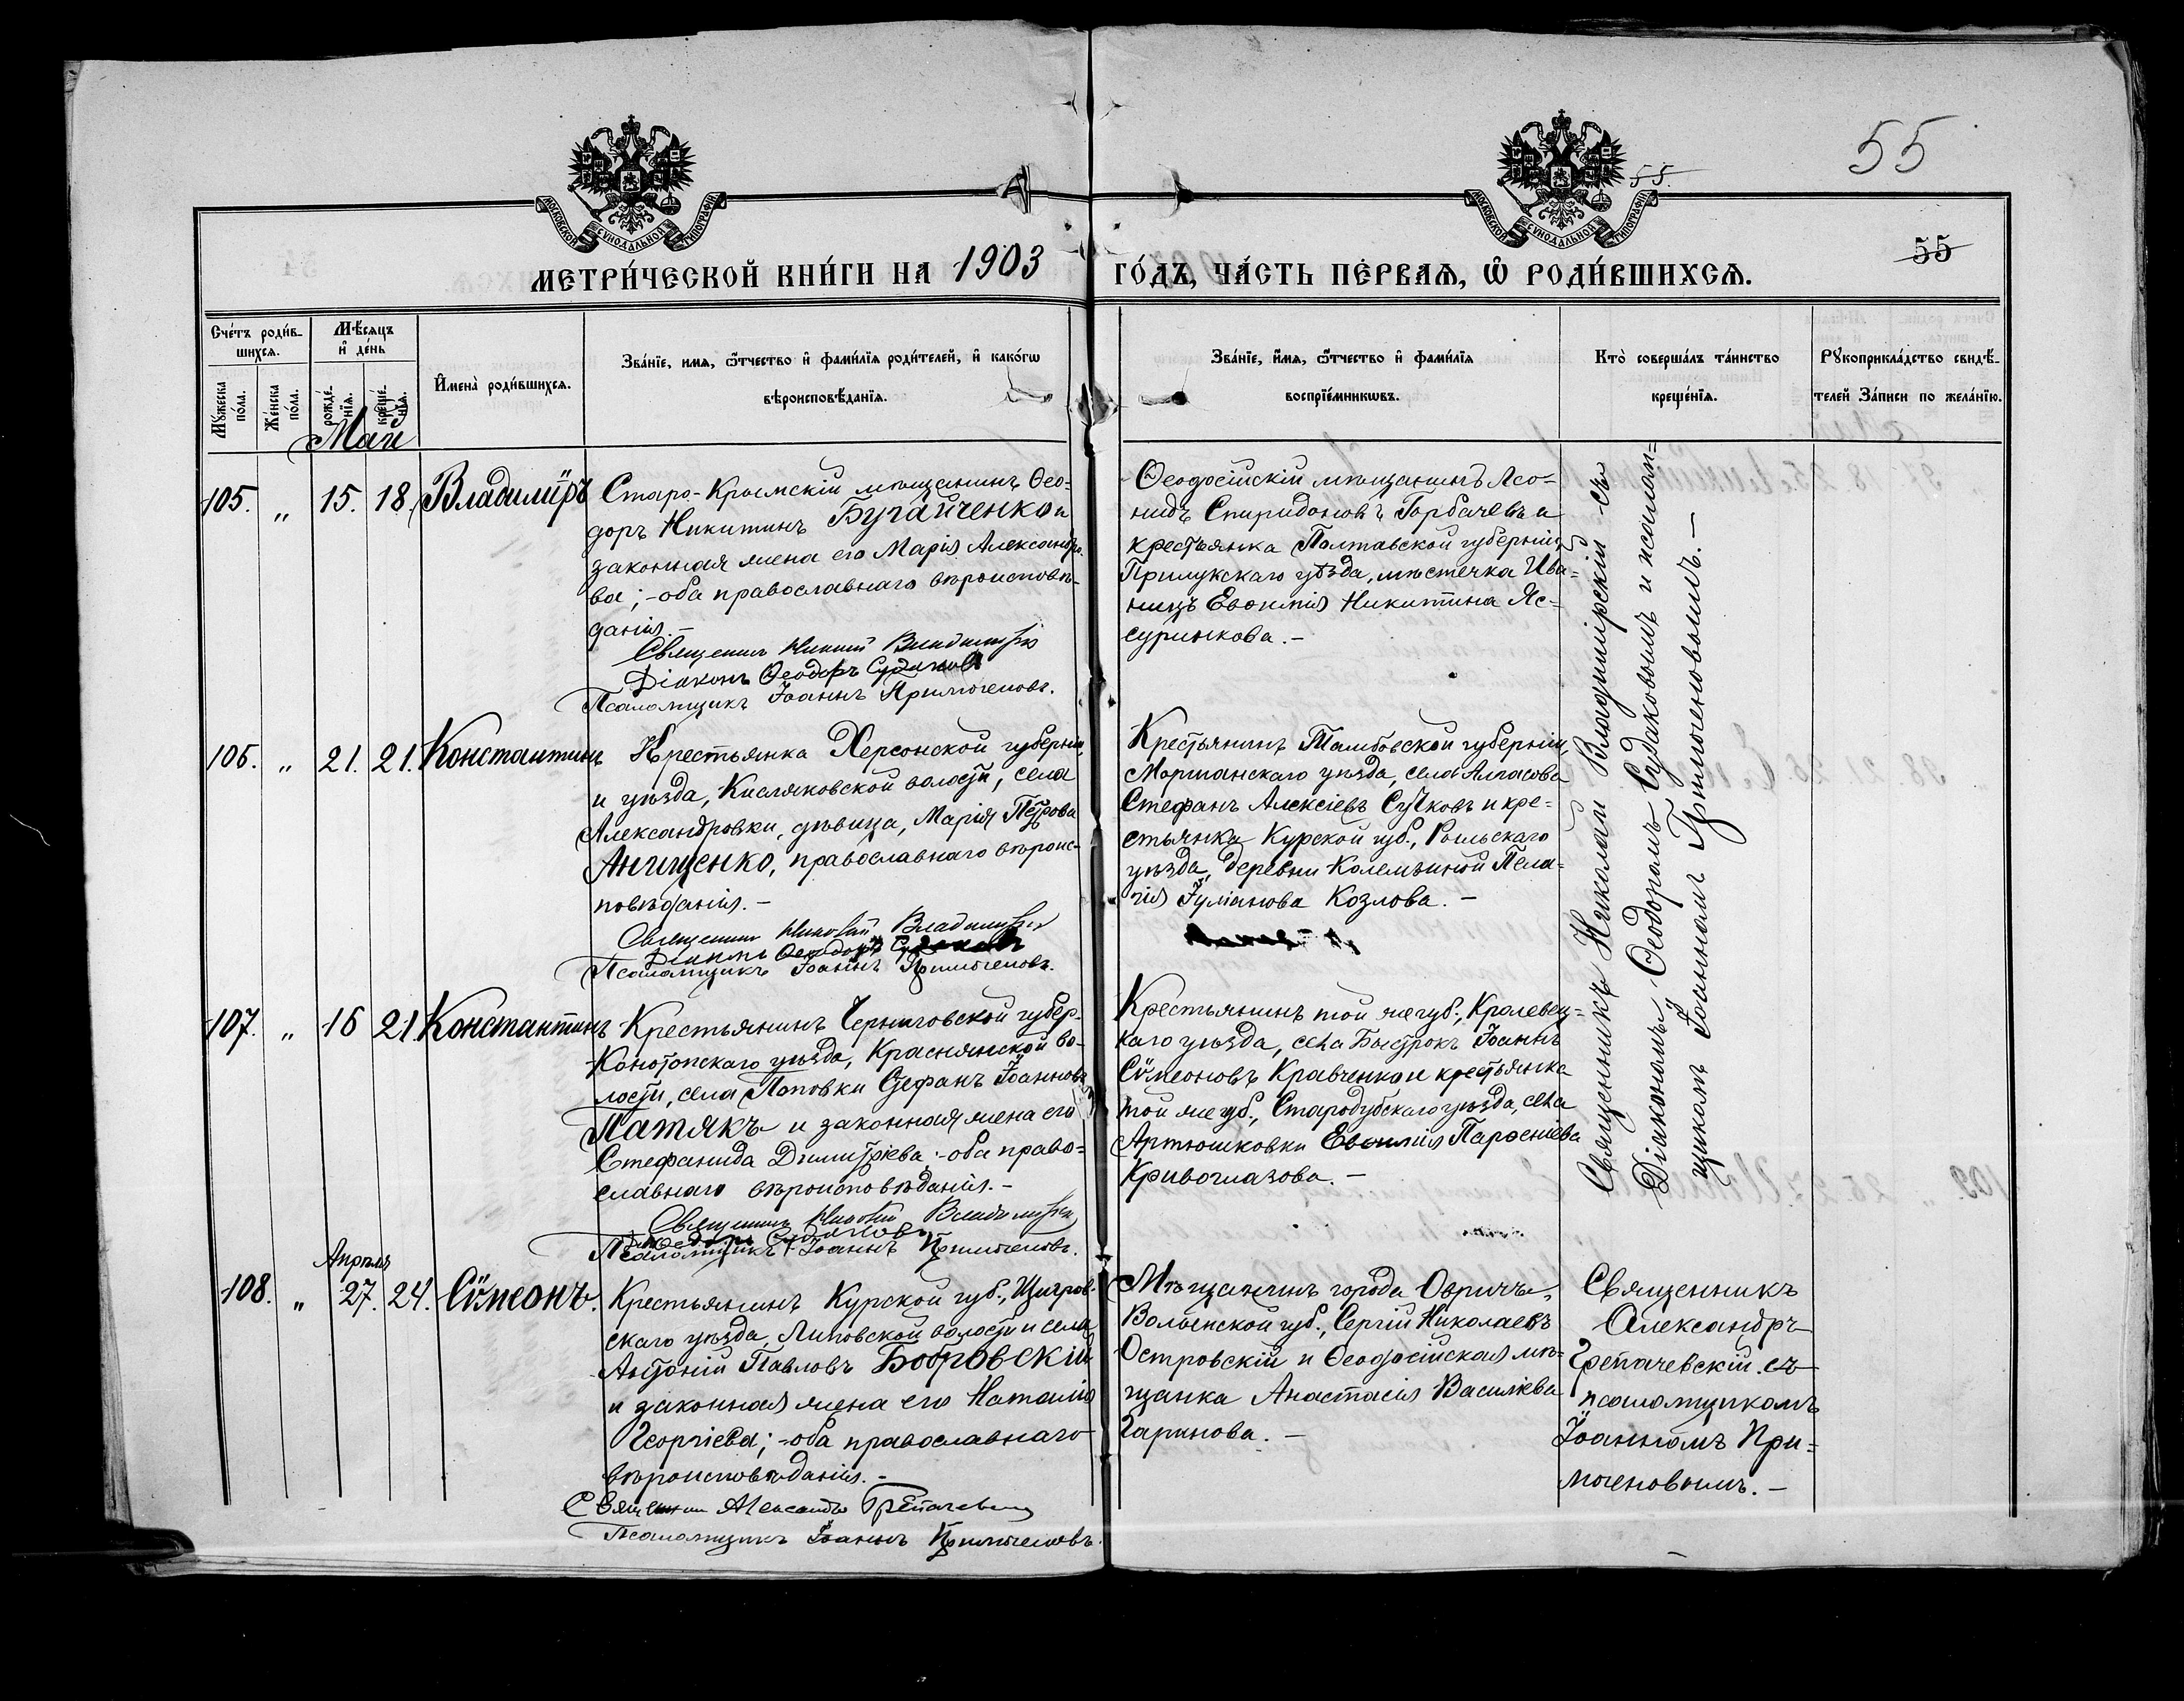 55
55.
55
МОСКОВСКОЙ СѴНОДАЛЬНОЙ ТИПОГРАФІИ
МОСКОВСКОЙ СѴНОДАЛЬНОЙ ТИПОГРАФІИ
МЕТРИ́ЧЕСКОЙ КНИ́ГИ НА 1903 ГО́ДЪ, ЧА́СТЬ ПЕ́РВАѦ, Ѽ РОДИ́ВШИХСѦ.
Сче́тъ роди́в-
шихсѧ.
Мѣ́сѧцъ
и҆ де́нь
Мꙋ́жеска по́ла.
Же́нска по́ла.
рожде́-
нїѧ.
креще́-
нїѧ.
И҆мена̀ роди́вшихсѧ.
Зва́нїе, и́мѧ, ѻ҆́тчество и҆ фами́лїѧ роди́телей, и҆ како́гѡ
вѣроисповѣ́данїѧ.
Зва́нїе, и́мѧ, ѻ҆́тчество и҆ фами́лїѧ
воспрїе́мникѡвъ.
Кто̀ соверша́лъ та́инство
креще́нїѧ.
Рꙋкоприкла́дство свидѣ́-
телей За́писи по жела́нїю.
Маи
105. „ 15. 18. Владиміръ
Старо-Крымскій мѣщанинъ Ѳео-
доръ Никитинъ Бугайченко и
законная жена его Марія Александро-
ва; - оба православнаго вѣроисповѣ-
данія. -
Священникъ Николай Владимірскій
Діаконъ Ѳеодоръ Судаковъ
Псаломщикъ Іоаннъ Примоченовъ.
Ѳеодосійскій мѣщанинъ Лео-
нидъ Спиридоновъ Горбачевъ и
крестьянка Полтавской губерніи,
Прилукскаго уѣзда, мѣстечка Ива-
ницъ Евѳимія Никитина Яс-
суринкова. -
106. „ 21. 21. Константинъ
Крестьянка Херсонской губерніи
и уѣзда, Кисляковской волости, села
Александровки, дѣвица, Марія Петрова
Анищенко, православнаго вѣроис-
повѣданія. -
Священникъ Николай Владимірскій
Діаконъ Ѳеодоръ Судаковъ
Псаломщикъ Іоаннъ Примоченовъ.
Крестьянинъ Тамбовской губерніи,
Моршанскаго уѣзда, села Алгасова
Стефанъ Алексіевъ Сучковъ и кре-
стьянка Курской губ., Рыльскаго
уѣзда, деревни Колемзиной Пела-
гія Іуліанова Козлова. -
107. „ 16 21. Константинъ
Крестьянинъ Черниговской губер.
Конотопскаго уѣзда, Краснянской во-
лости, села Поповки Стефанъ Іоанновъ
Патякъ и законная жена его
Стефанида Димитріева; - оба право-
славнаго вѣроисповѣданія. -
Священникъ Николай Владимірскій
Ѳеодоръ Судаковъ
Псаломщикъ Іоаннъ Примоченовъ.
Крестьянинъ той же губ., Кролевец-
каго уѣзда, села Быстрокъ Іоаннъ
Сѵмеоновъ Кравченко и крестьянка
той же губ., Стародубскаго уѣзда, села
Артюшковки Евѳимія Парѳеніева
Кривоглазова. -
Священникъ Николай Владимірскій съ
Діакономъ Ѳеодоромъ Судаковымъ и псалом-
щикомъ Іоанномъ Примоченовымъ. -
Апрѣля
108. „ 27. 24. Сѵмеонъ.
Крестьянинъ Курской губ., Щигров-
скаго уѣзда, Липовской волости и села
Антоній Павловъ Бобровскій
и законная жена его Наталія
Георгіева; - оба православнаго
вѣроисповѣданія. -
Священникъ Александръ Трепачевскій
Псаломщикъ Іоаннъ Примоченовъ.
Мѣщанинъ города Овруча,
Волынской губ., Сергій Николаевъ
Островскій и Ѳеодосійская мѣ-
щанка Анастасія Василіева
Гаринова. -
Священникъ
Александръ
Трепачевскій съ
псаломщикомъ
Іоанномъ При-
моченовымъ. -